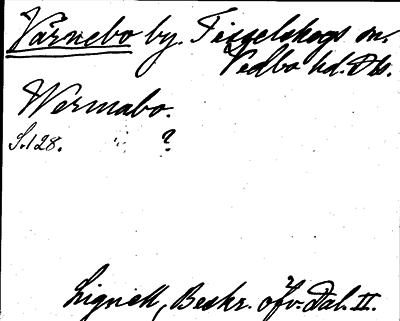 Värnebo by. Tisselskogs sn.
Vedbo hd. Dls.
Wermabo.
S. 128. ?
Lignell, Beskr. öfv. Dal. II.